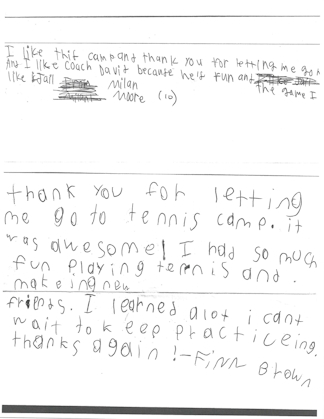 I like this camp and thank you for letting me go
And I like Coach David because he is fun and
like all the game I
Milan
Moore (10)
thank you for letting
me go to tennis camp. it
was awesome! I had so much
fun playing tennis and
makeing new
friends. I learned alot i cant
wait to keep practiceing.
thanks again! -Finn Brown